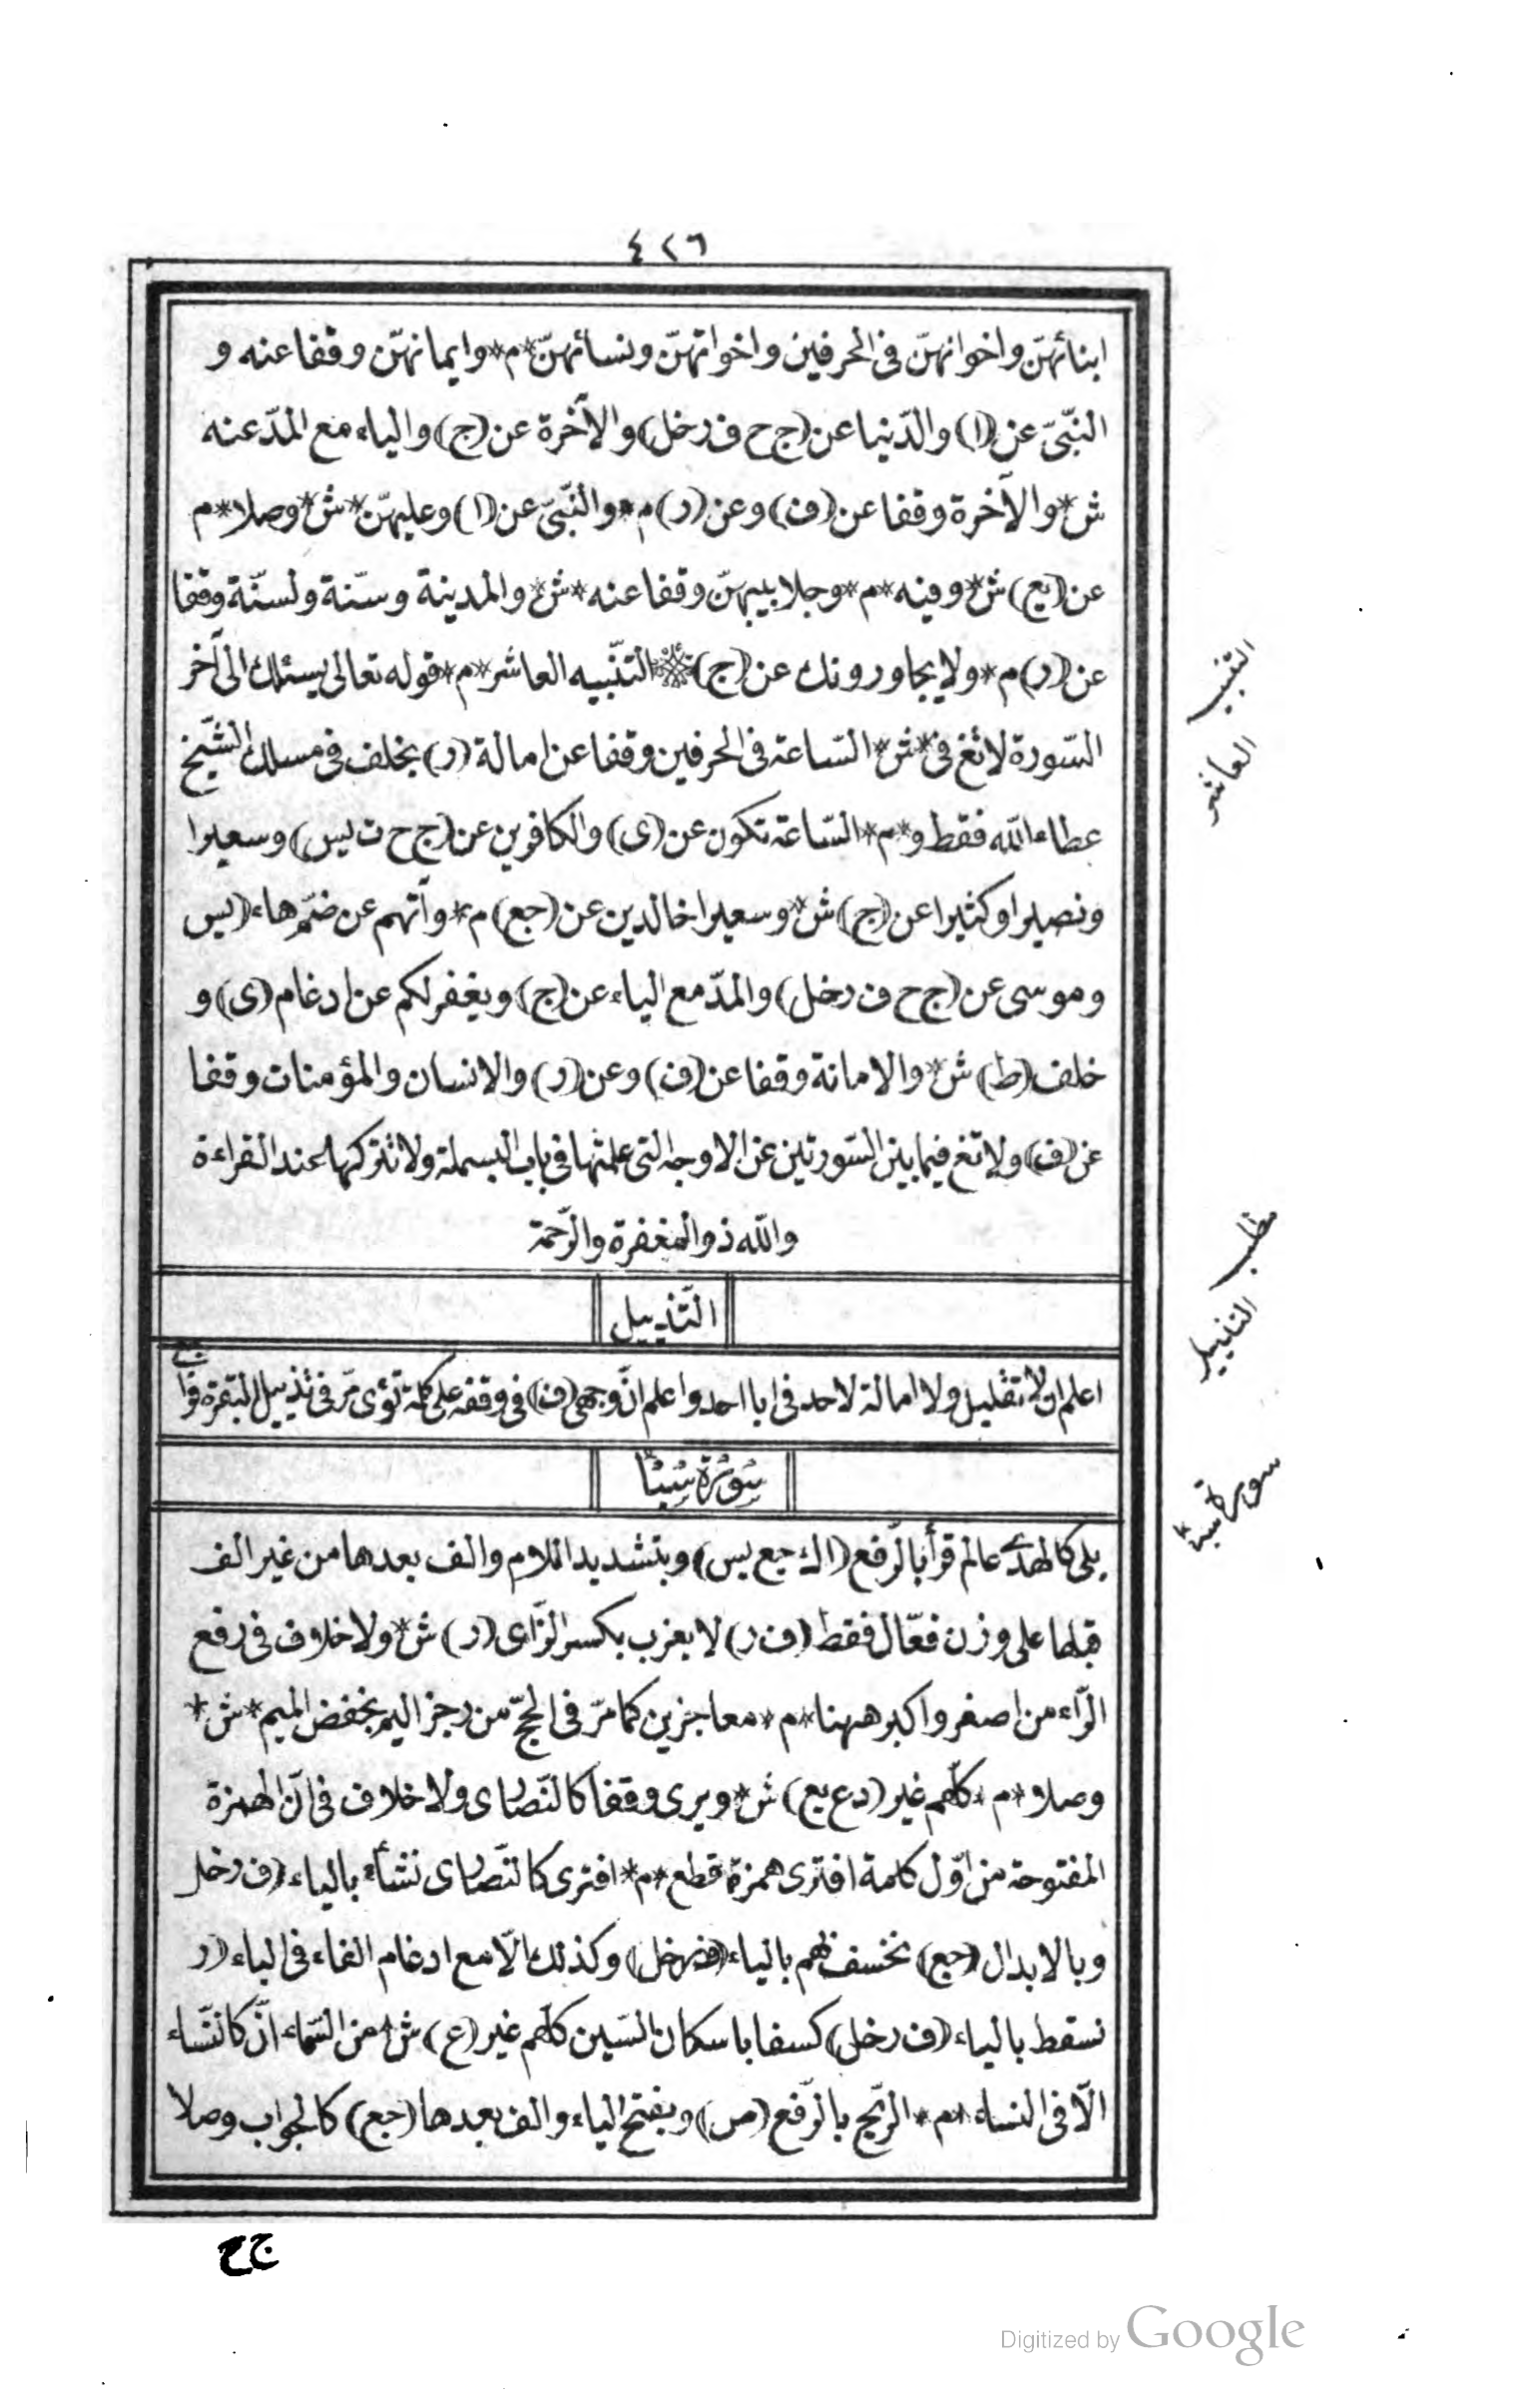 ٤٢٦
ابنائهنّ واخوانهنّ فى الحرفين واخواتهنّ ونسائهنّ*م*وايمانهنّ وقفا عنه و
النّبىّ عن (ا) والدّنيا عن (ج ح ف رخل) والآخرة عن (ج) والياء مع المدّ عنه
ش*والآخرة وقفا عن (ف) وعن (ر) م*والنّبىّ عن (ا) وعليهنّ*ش*وصلا*م
عن (يع) ش*وفيه*م*وجلابيبهنّ وقفا عنه*ش*والمدينة وسنّة ولسنّة وقفا
عن (ر) م*ولا يجاورونك عن (ج) التّنبيه العاشر*م*قوله تعالى يسئلك الى آخر
السّورة لا تغ فى*ش*السّاعة فى الحرفين وقفا عن امالة (ر) بخلف فى مسلك الشّيخ
عطاء الله فقط و*م*السّاعة تكون عن (ى) والكافرين عن (ج ح ت يس) وسعيرا
ونصيرا وكثيرا عن (ج) ش*وسعيرا خالدين عن (جع) م*وآتهم عن ضمّ هاء (يس
وموسى عن (ج ح ف رخل) والمدّ مع الياء عن (ج) ويغفر لكم عن ادغام (ى) و
خلف (ط) ش*والامانة وقفا عن (ف) وعن (ر) والانسان والمؤمنات وقفا
عن (ف) ولا تغ فيما بين السّورتين عن الاوجه التى علمتها فى باب البسملة ولا تتركها عند القراءة
والله ذو المغفرة والرّحمة
التّذييل
اعلم اوّلا تقليل ولا امالة لاحد فى ابا احد واعلم انّ وجهى (ف) فى وقفه على كلمة تؤى مرّ فى تذييل البقرة
سورة سبا
بلى كالهدى عالم قرأ بالرّفع (ا ك جع يس) وبتشديد اللام والف بعدها من غير الف
قبلها على وزن فعّال فقط (ف ر) لا يعزب بكسر الزّاى (ر) ش*ولا خلاف فى رفع
الرّاء من اصغر واكبر ههنا*م*معاجزين كما مرّ فى الحجّ من رجز اليم بخفض الميم*ش*
وصلا*م*كلّهم غير (د ع يع) ش*ويرى وقفا كالنّصارى ولا خلاف فى انّ الهمزة
المفتوحة من اوّل كلمة افترى همزة قطع*م*افترى كالنّصارى نشأ بالياء (ف رخل
وبالابدال (جع) نخسف بهم بالياء (ف رخل) وكذلك الّا مع ادغام الفاء فى الباء (ر
نسقط بالياء (ف رخل) كسفا باسكان السّين كلّهم غير (ع) ش*من السّماء انّ كالنّساء
الّا فى النساء*م*الرّيح بالرّفع (ص) وبفتح الياء والف بعدها (جع) كالجواب وصلا
ج ح
التنبيه
العاشر
مطلب
التذييل
سورة سبا
Digitized by Google